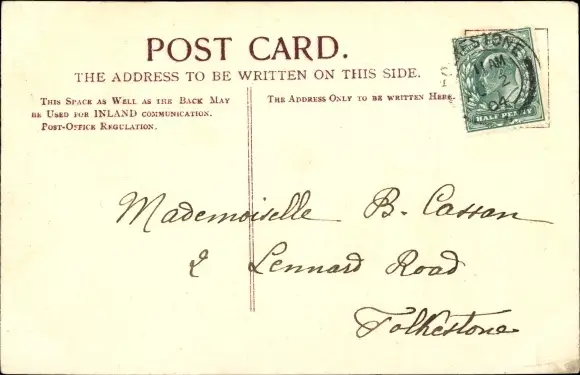 POST CARD.
THE ADDRESS TO BE WRITTEN ON THIS SIDE.
THIS SPACE AS WELL AS THE BACK MAY
BE USED FOR INLAND COMMUNICATION.
POST-OFFICE REGULATION.
THE ADDRESS ONLY TO BE WRITTEN HERE.
FOLKESTONE
11 AM
2
04
HALF PENNY
Mademoiselle B. Cassan
2 Lennard Road
Folkestone